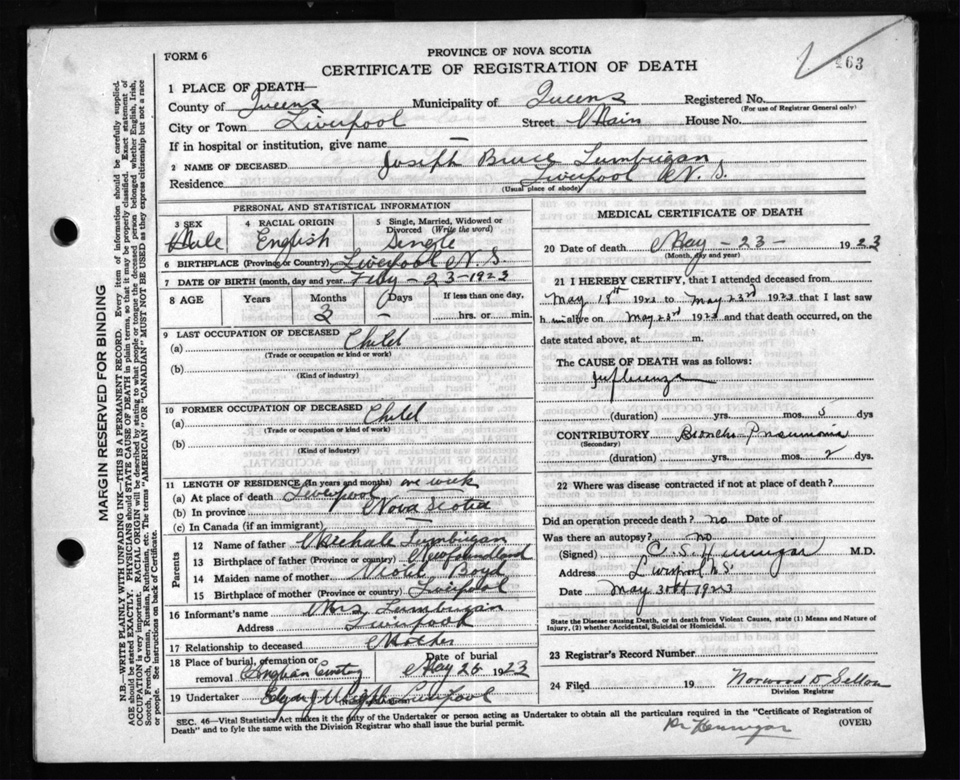 163
FORM 6
PROVINCE OF NOVA SCOTIA
CERTIFICATE OF REGISTRATION OF DEATH
1 PLACE OF DEATH—
County of Queens Municipality of Queens Registered No.
(For use of Registrar General only)
City or Town Liverpool Street Main House No.
If in hospital or institution, give name —
2 NAME OF DECEASED Joseph Bruce Lumbigan
Residence Liverpool N. S.
(Usual place of abode)
PERSONAL AND STATISTICAL INFORMATION
3 SEX Male
4 RACIAL ORIGIN English
5 Single, Married, Widowed or Divorced (Write the word) Single
6 BIRTHPLACE (Province or Country) Liverpool N. S.
7 DATE OF BIRTH (month, day and year) Feby - 23 - 1923
8 AGE Years Months Days If less than one day,
3 — hrs. or min.
9 LAST OCCUPATION OF DECEASED
(a) Child
(Trade or occupation or kind or work)
(b)
(Kind of industry)
10 FORMER OCCUPATION OF DECEASED
(a) Child
(Trade or occupation or kind or work)
(b)
(Kind of industry)
11 LENGTH OF RESIDENCE (In years and months) one week
(a) At place of death Liverpool
(b) In province Nova Scotia
(c) In Canada (if an immigrant) —
Parents
12 Name of father Lumbigan
13 Birthplace of father (Province or country) Newfoundland
14 Maiden name of mother Boyd
15 Birthplace of mother (Province or country) Liverpool
16 Informant's name Mrs Lumbigan
Address Liverpool
17 Relationship to deceased Mother
18 Place of burial, cremation or removal
Date of burial May 26 1923
19 Undertaker Liverpool
MEDICAL CERTIFICATE OF DEATH
20 Date of death May - 23 - 1923
(Month, day and year)
21 I HEREBY CERTIFY, that I attended deceased from
May 18th 1923 to May 23rd 1923 that I last saw
h im alive on May 23rd 1923 and that death occurred, on the
date stated above, at m.
The CAUSE OF DEATH was as follows:
Influenza
(duration) yrs. mos. 5 dys
CONTRIBUTORY Broncho-Pneumonia
(Secondary)
(duration) yrs. mos. 2 dys.
22 Where was disease contracted if not at place of death?
Did an operation precede death? no Date of
Was there an autopsy? no
(Signed) C. S. Hennigar M.D.
Address Liverpool N.S.
Date May 30th 1923
State the Disease causing Death, or in death from Violent Causes, state (1) Means and Nature of Injury, (2) whether Accidental, Suicidal or Homicidal.
23 Registrar's Record Number
24 Filed 19 Norwood
Division Registrar
SEC. 46—Vital Statistics Act makes it the duty of the Undertaker or person acting as Undertaker to obtain all the particulars required in the "Certificate of Registration of
Death" and to fyle the same with the Division Registrar who shall issue the burial permit. (OVER)
Dr Hennigar
MARGIN RESERVED FOR BINDING
N.B.—WRITE PLAINLY WITH UNFADING INK—THIS IS A PERMANENT RECORD. Every item of information should be carefully supplied.
AGE should be stated EXACTLY. PHYSICIANS should STATE CAUSE OF DEATH in plain terms, so that it may be properly classified. Exact statement of
OCCUPATION is very important. RACIAL ORIGIN will be described by stating to what people or tongue the deceased person belonged whether English, Irish,
Scotch, French, German, Russian, Ruthenian, etc. The terms "AMERICAN" OR "CANADIAN" MUST NOT BE USED as they express citizenship but not a race
or people. See instructions on back of Certificate.